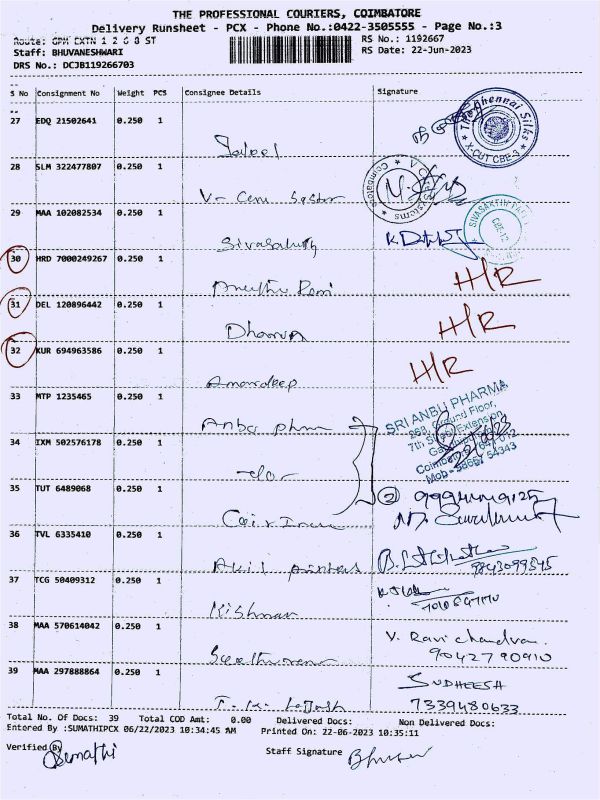 THE PROFESSIONAL COURIERS, COIMBATORE
Delivery Runsheet - PCX - Phone No.:0422-3505555 - Page No.:3
Route: GPM EXTN 1 2 6 8 ST
RS No.: 1192667
Staff: BHUVANESHWARI
RS Date: 22-Jun-2023
DRS No.: DCJB119266703
S No Consignment No Weight PCS Consignee Details Signature
27 EDQ 21502641 0.250 1
The Chennai Silks
X-CUT CBE-3
28 SLM 322477807 0.250 1
V- Cem System
Coimbatore
29 MAA 102082534 0.250 1
Sivasakthi
30 HRD 7000249267 0.250 1
H/R
31 DEL 120896442 0.250 1
Dhanya H/R
32 KUR 694963586 0.250 1
Amardeep H/R
33 MTP 1235465 0.250 1
Anbu pharma
SRI ANBU PHARMA
263, Ground Floor,
7th Street Extension
34 IXM 502576178 0.250 1
-do-
35 TUT 6489068 0.250 1
2
36 TVL 6335410 0.250 1
Akil printers
9843099545
37 TCG 50409312 0.250 1
Kishnan
38 MAA 570614042 0.250 1
V. Ravichandran.
9042790910
39 MAA 297888864 0.250 1
SUDHEESH
7339480633
Total No. Of Docs: 39 Total COD Amt: 0.00 Delivered Docs: Non Delivered Docs:
Entered By :SUMATHIPCX 06/22/2023 10:34:45 AM Printed On: 22-06-2023 10:35:11
Verified By Sumathi
Staff Signature